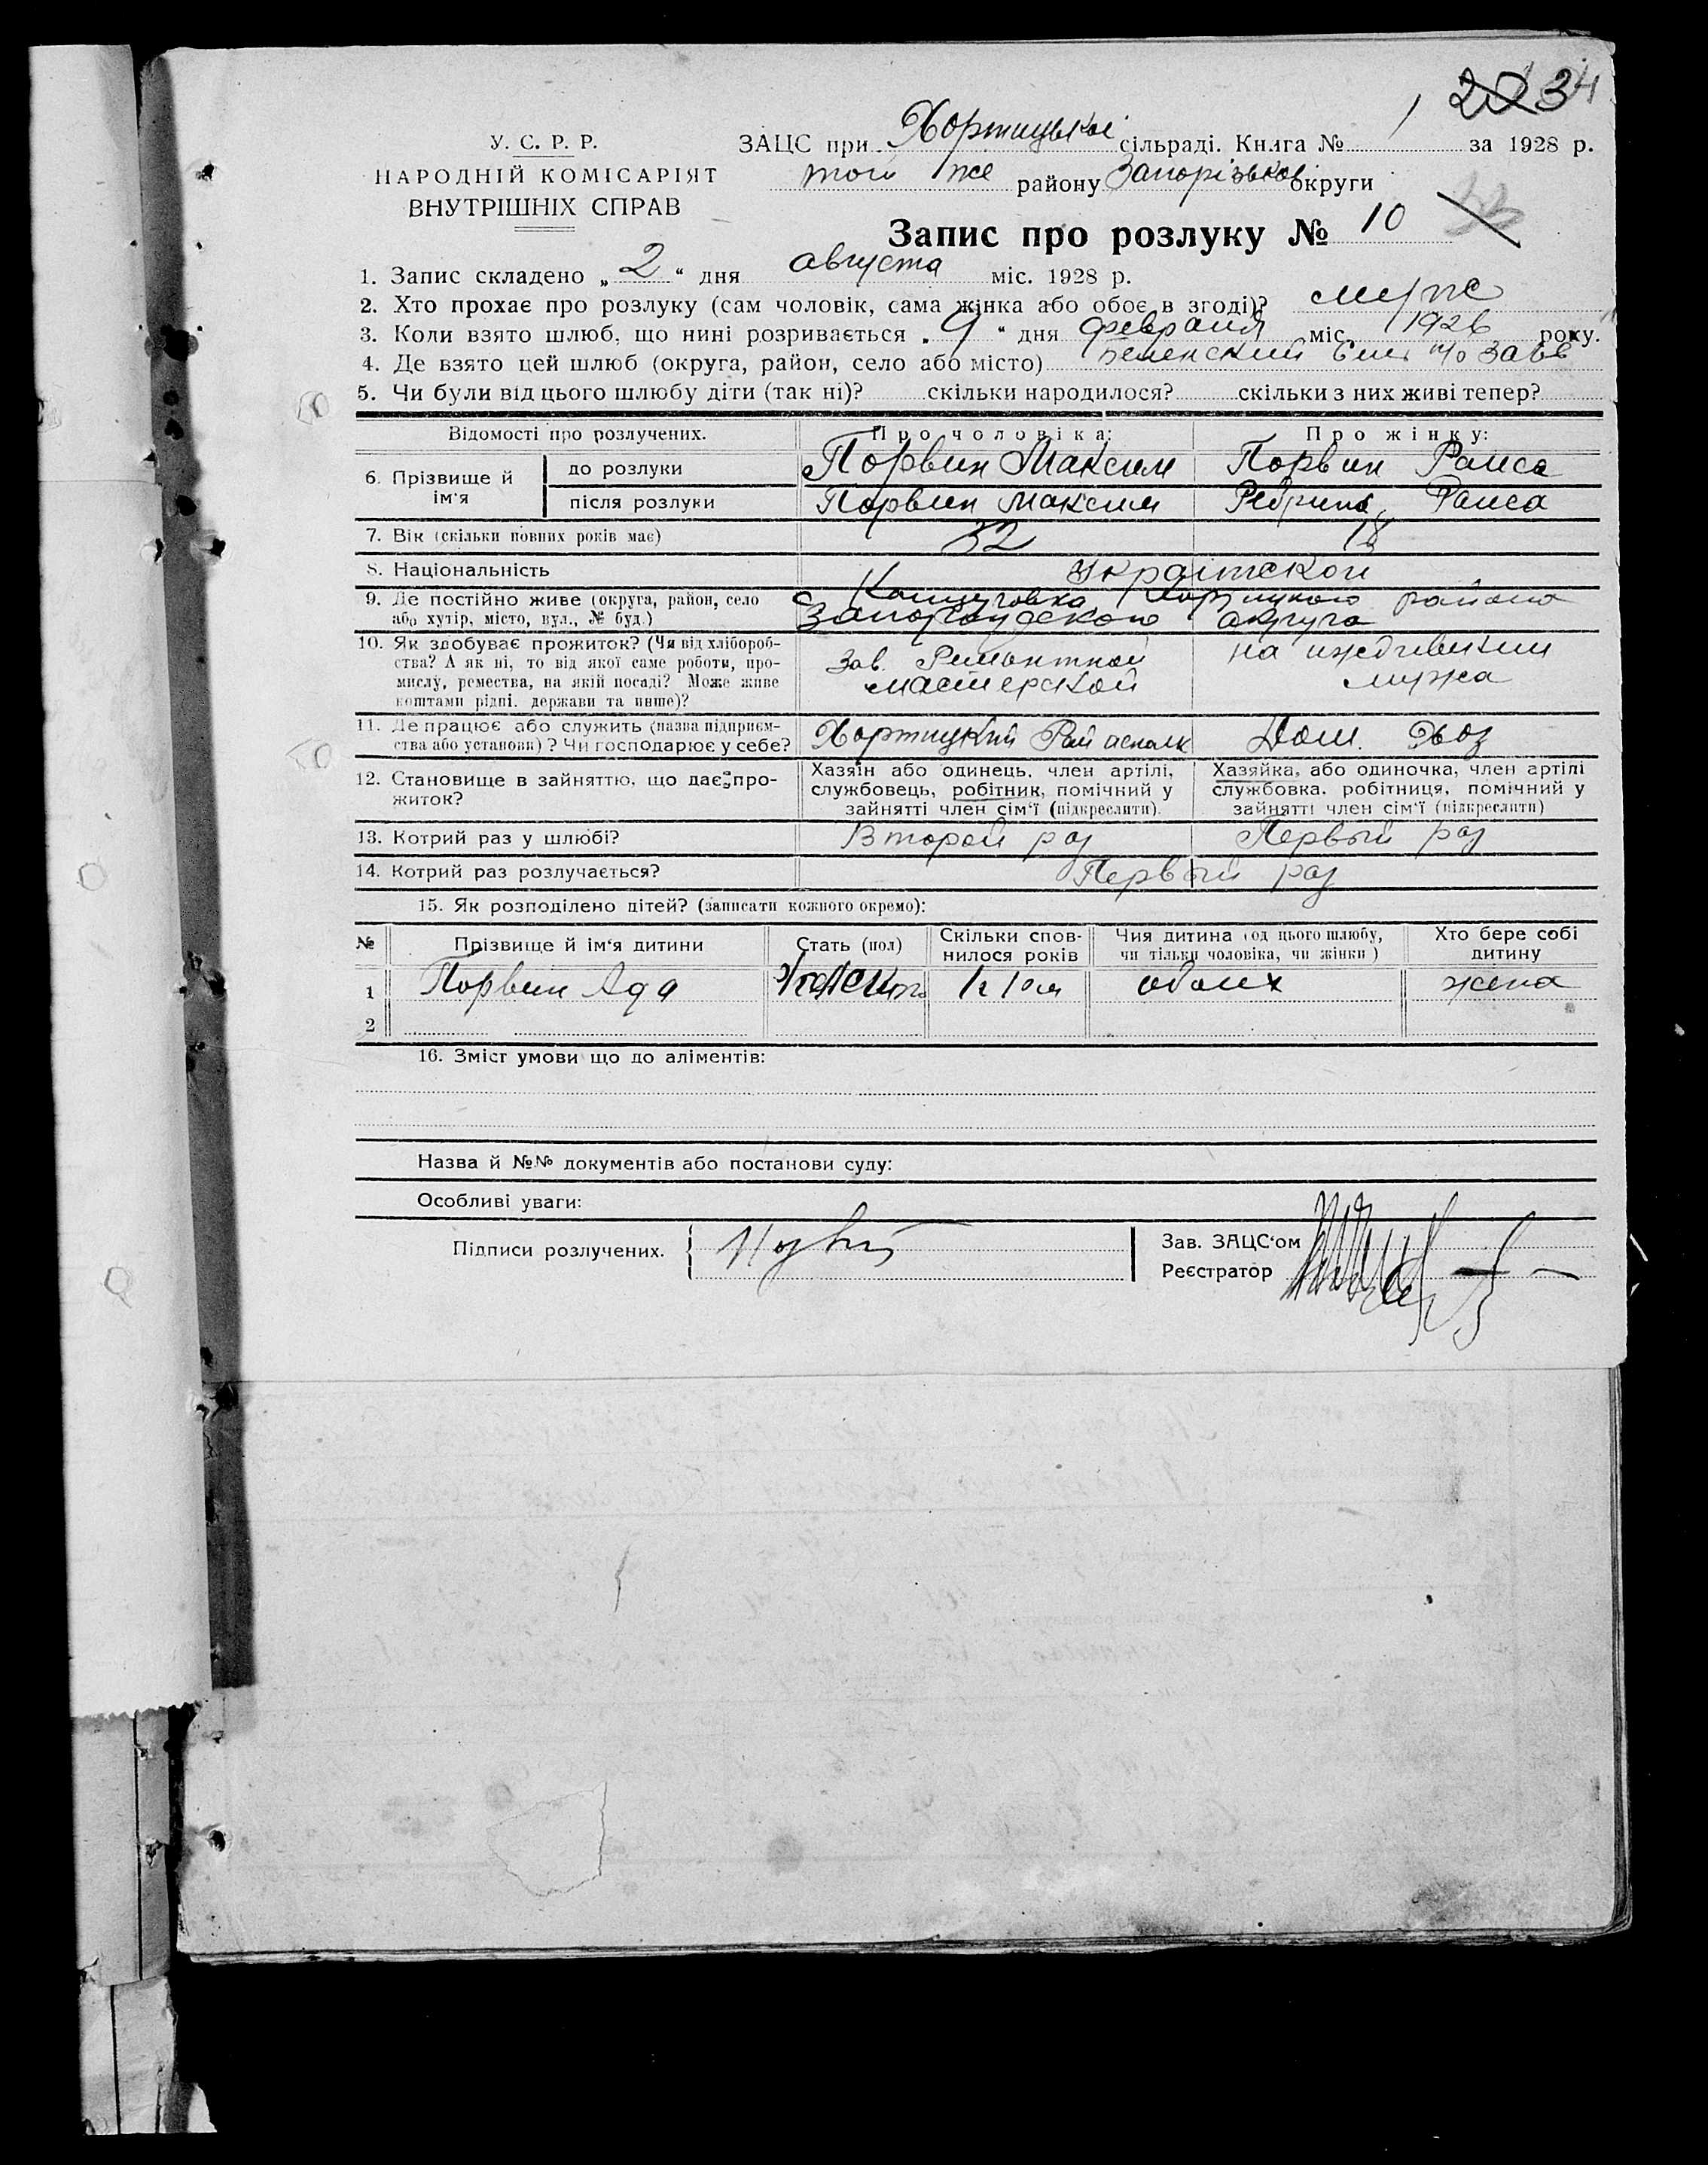 203
У. С. Р. Р.
НАРОДНІЙ КОМІСАРІЯТ
ВНУТРІШНІХ СПРАВ
ЗАЦС при Хортицької сільраді. Книга № 1 за 1928 р.
той же району Запорізької округи
Запис про розлуку № 10
1. Запис складено „2“ дня августа міс. 1928 р.
2. Хто прохає про розлуку (сам чоловік, сама жінка або обоє в згоді)? муж
3. Коли взято шлюб, що нині розривається „9“ дня февраля міс. 1926 року.
4. Де взято цей шлюб (округа, район, село або місто)
5. Чи були від цього шлюбу діти (так ні)? скільки народилося? скільки з них живі тепер?
Відомості про розлучених. Про чоловіка: Про жінку:
6. Прізвище й ім'я до розлуки Порвин Максим Порвин Раиса
після розлуки Порвин Максим Раиса
7. Вік (скільки повних років має) 32 18
8. Національність
9. Де постійно живе (округа, район, село Хортицкого района
або хутір, місто, вул., № буд.) округа
10. Як здобуває прожиток? (Чи від хлібороб-
ства? А як ні, то від якої саме роботи, про-
мислу, ремества, на якій посаді? Може живе
коштами рідні, держави та инше)?
Зав. Ремонтной
мастерской
на иждивении
мужа
11. Де працює або служить (назва підприєм-
ства або установи)? Чи господарює у себе?
Хортицкий Дом. Хоз
12. Становище в зайняттю, що дає про-
житок?
Хазяїн або одинець, член артілі,
службовець, робітник, помічний у
зайнятті член сім'ї (підкреслити).
Хазяйка, або одиночка, член артілі
службовка, робітниця, помічний у
зайнятті член сім'ї (підкреслити)
13. Котрий раз у шлюбі? Второй раз Первый раз
14. Котрий раз розлучається? Первый раз
15. Як розподілено дітей? (записати кожного окремо):
№ Прізвище й ім'я дитини Стать (пол) Скільки спов-
нилося років Чия дитина (од цього шлюбу,
чи тільки чоловіка, чи жінки) Хто бере собі
дитину
1 Порвин Ада обоих жена
2
16. Зміст умови що до аліментів:
Назва й №№ документів або постанови суду:
Особливі уваги:
Підписи розлучених.
Зав. ЗАЦС'ом
Реєстратор